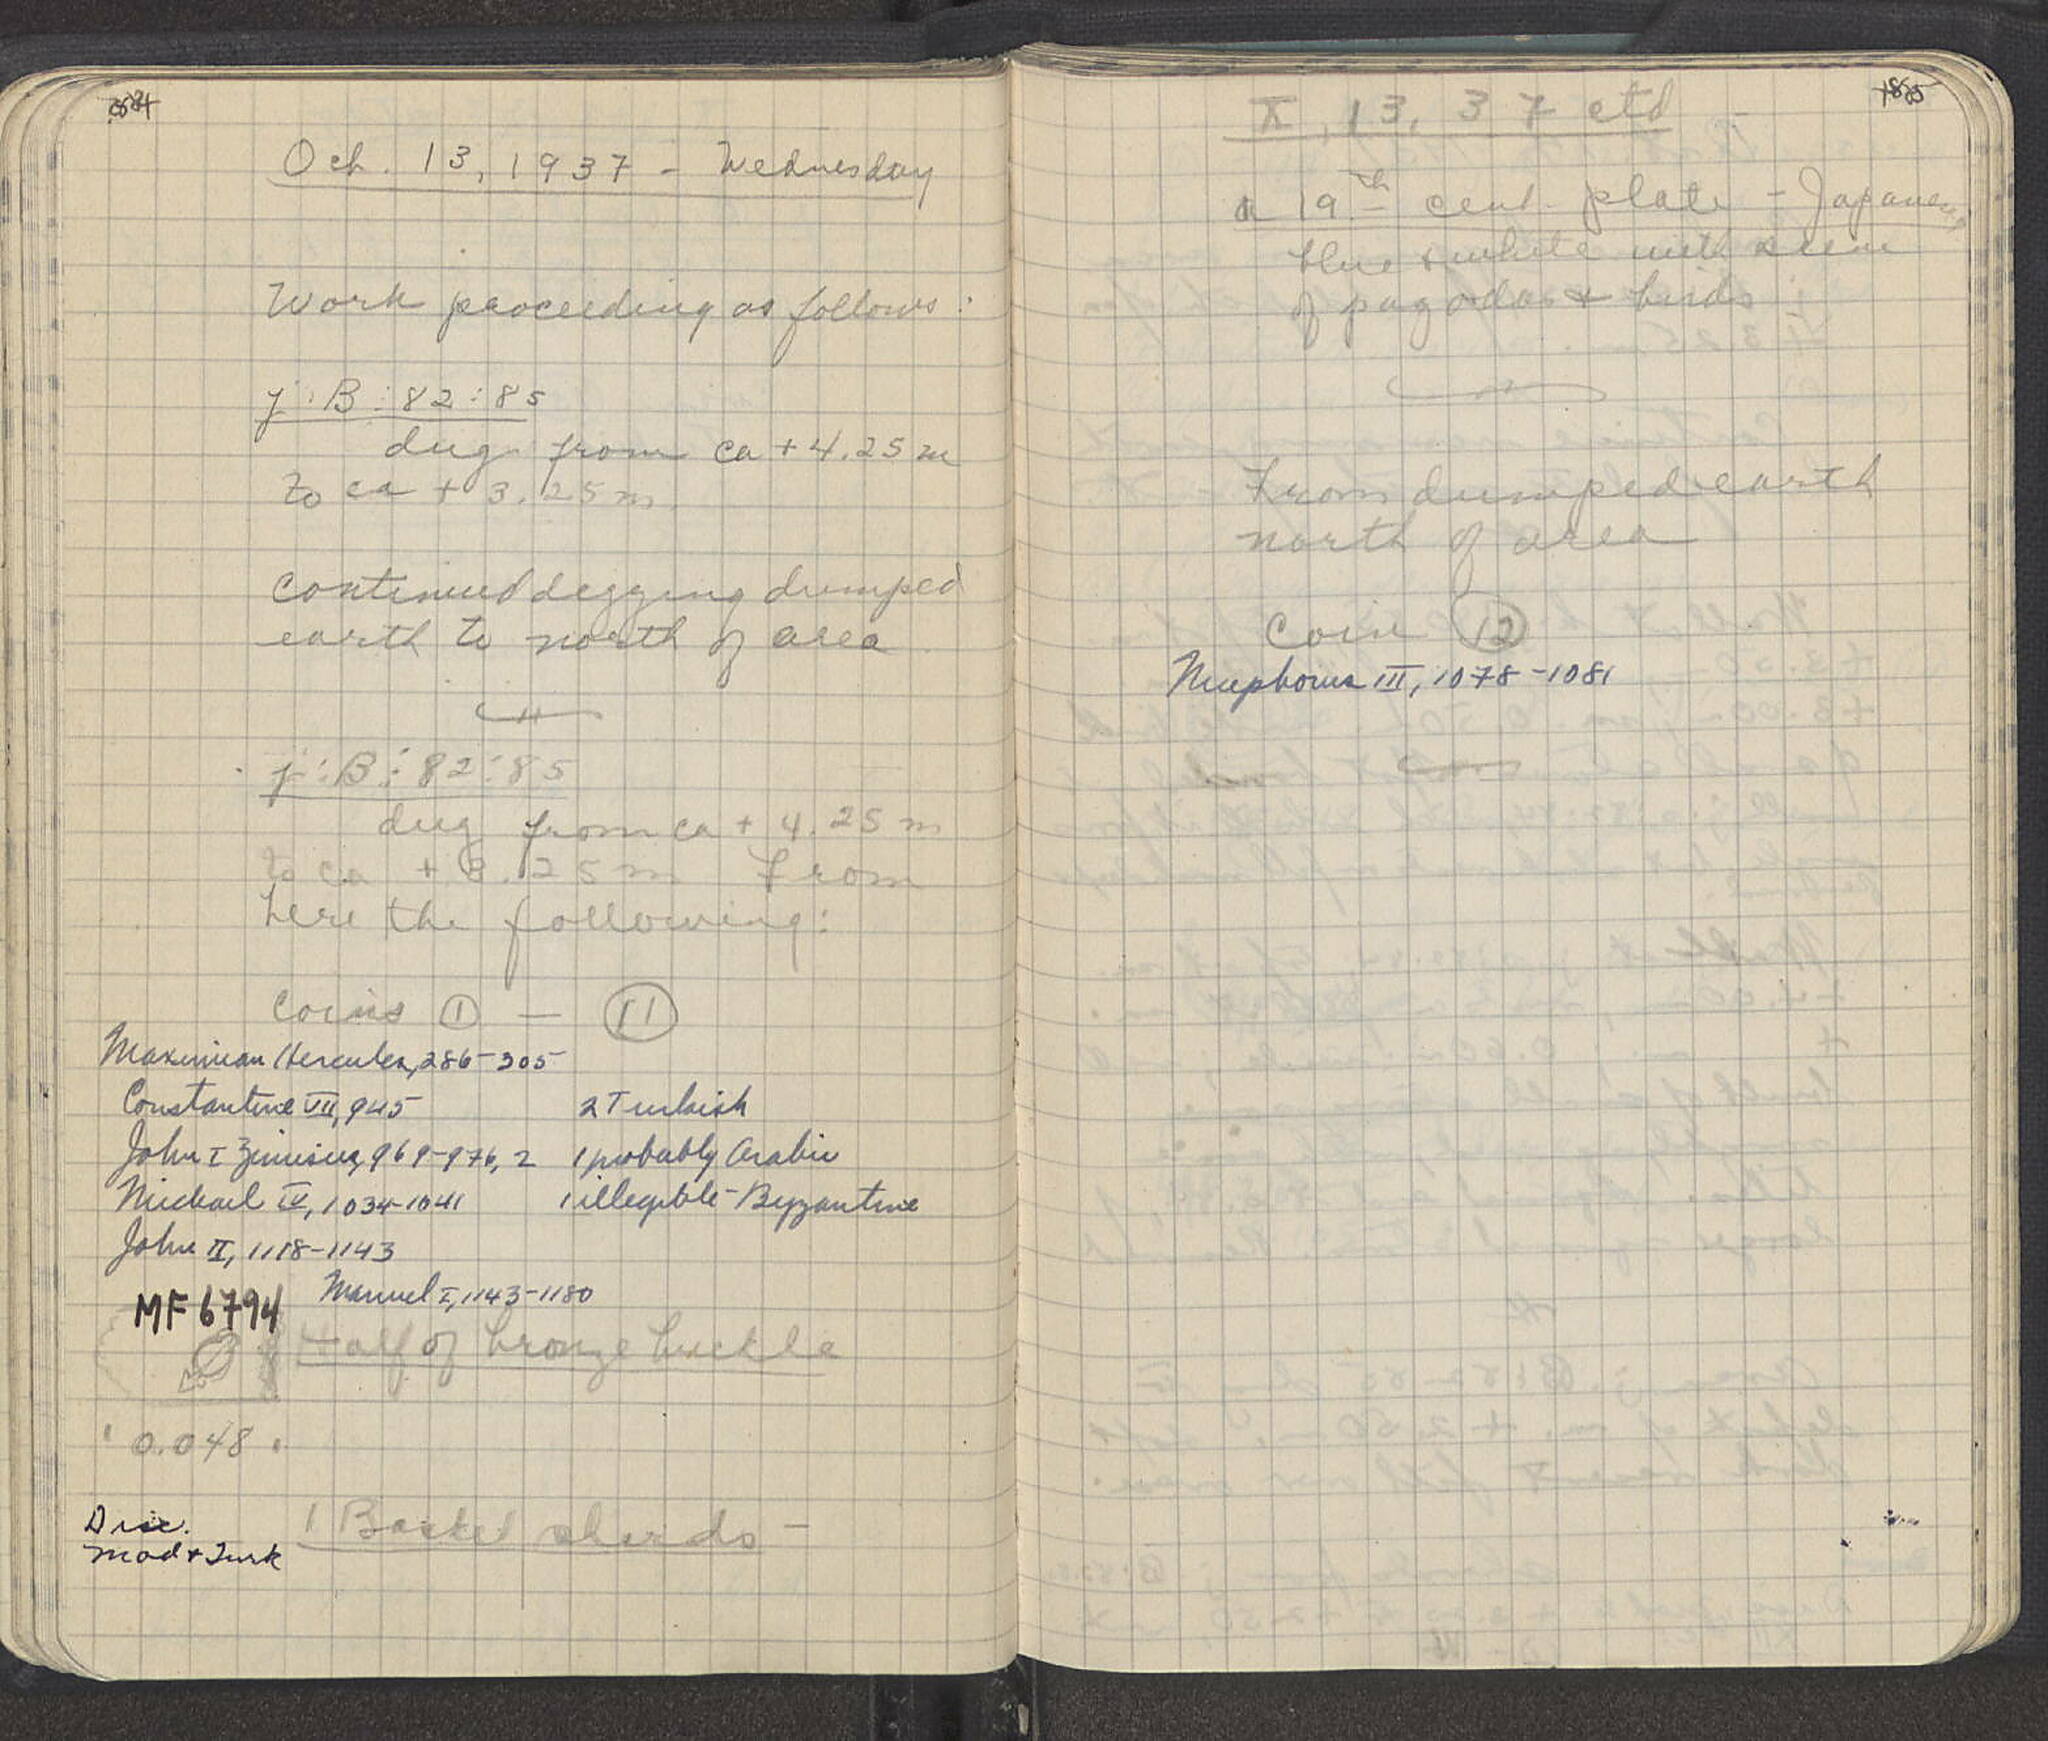 Oct. 13, 1937 - Wednesday
Work proceeding as follows:
j:B:82:85
dug from ca + 4.25 m
to ca + 3.25 m.
continued digging dumped
earth to north of area.
j:B:82:85
dug from ca + 4.25 m
to ca + 3.25 m From
here the following:
coins 1 — 11
Maximian Hercules, 286-305
Constantine VII, 945
2 Turkish
John I Zimisces, 969-976, 2
1 probably Arabic
Michael IV, 1034-1041
1 illegible - Byzantine
John II, 1118-1143
Manuel I, 1143-1180
MF 6794
Half of bronze buckle
0.048
Disc.
Mod + Turk
1 Basket sherds -
1885
X, 13, 37 ctd
a 19th cent. plate - Japanese,
blue & white with scene
of pagodas & birds
From dumped earth
north of area
Coin 12
Nicephorus III, 1078-1081